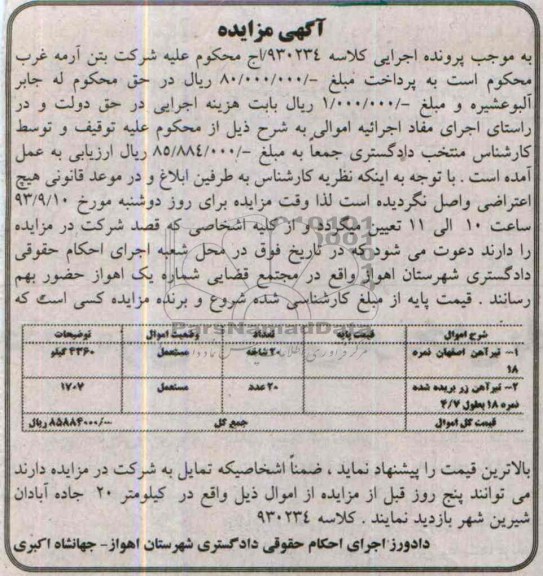 آگهی مزایده
به موجب پرونده اجرایی کلاسه ۹۳۰۲۳۴/اج محکوم علیه شرکت بتن آرمه غرب
محکوم است به پرداخت مبلغ -/۸۰/۰۰۰/۰۰۰ ریال در حق محکوم له جابر
آلبوعشیره و مبلغ -/۱/۰۰۰/۰۰۰ ریال بابت هزینه اجرایی در حق دولت و در
راستای اجرای مفاد اجرائیه اموالی به شرح ذیل از محکوم علیه توقیف و توسط
کارشناس منتخب دادگستری جمعاً به مبلغ -/۸۵/۸۸٤/۰۰۰ ریال ارزیابی به عمل
آمده است . با توجه به اینکه نظریه کارشناس به طرفین ابلاغ و در موعد قانونی هیچ
اعتراضی واصل نگردیده است لذا وقت مزایده برای روز دوشنبه مورخ ۹۳/۹/۱۰
ساعت ۱۰ الی ۱۱ تعیین میگردد و از کلیه اشخاصی که قصد شرکت در مزایده
را دارند دعوت می شود که در تاریخ فوق در محل شعبه اجرای احکام حقوقی
دادگستری شهرستان اهواز واقع در مجتمع قضایی شماره یک اهواز حضور بهم
رسانند . قیمت پایه از مبلغ کارشناسی شده شروع و برنده مزایده کسی است که
ParsNamadData
شرح اموال قیمت پایه تعداد وضعیت اموال توضیحات
۱- تیرآهن اصفهان نمره ۲۰ شاخه مستعمل ۴۳۶۰ کیلو
۱۸
۲- تیرآهن زر بریده شده ۲۰ عدد مستعمل ۱۷۰۷
نمره ۱۸ بطول ۴/۷
قیمت کل اموال جمع کل -/۸۵۸۸۴۰۰۰ ریال
بالاترین قیمت را پیشنهاد نماید ، ضمناً اشخاصیکه تمایل به شرکت در مزایده دارند
می توانند پنج روز قبل از مزایده از اموال ذیل واقع در کیلومتر ۲۰ جاده آبادان
شیرین شهر بازدید نمایند . کلاسه ۹۳۰۲۳٤
دادورز اجرای احکام حقوقی دادگستری شهرستان اهواز- جهانشاه اکبری